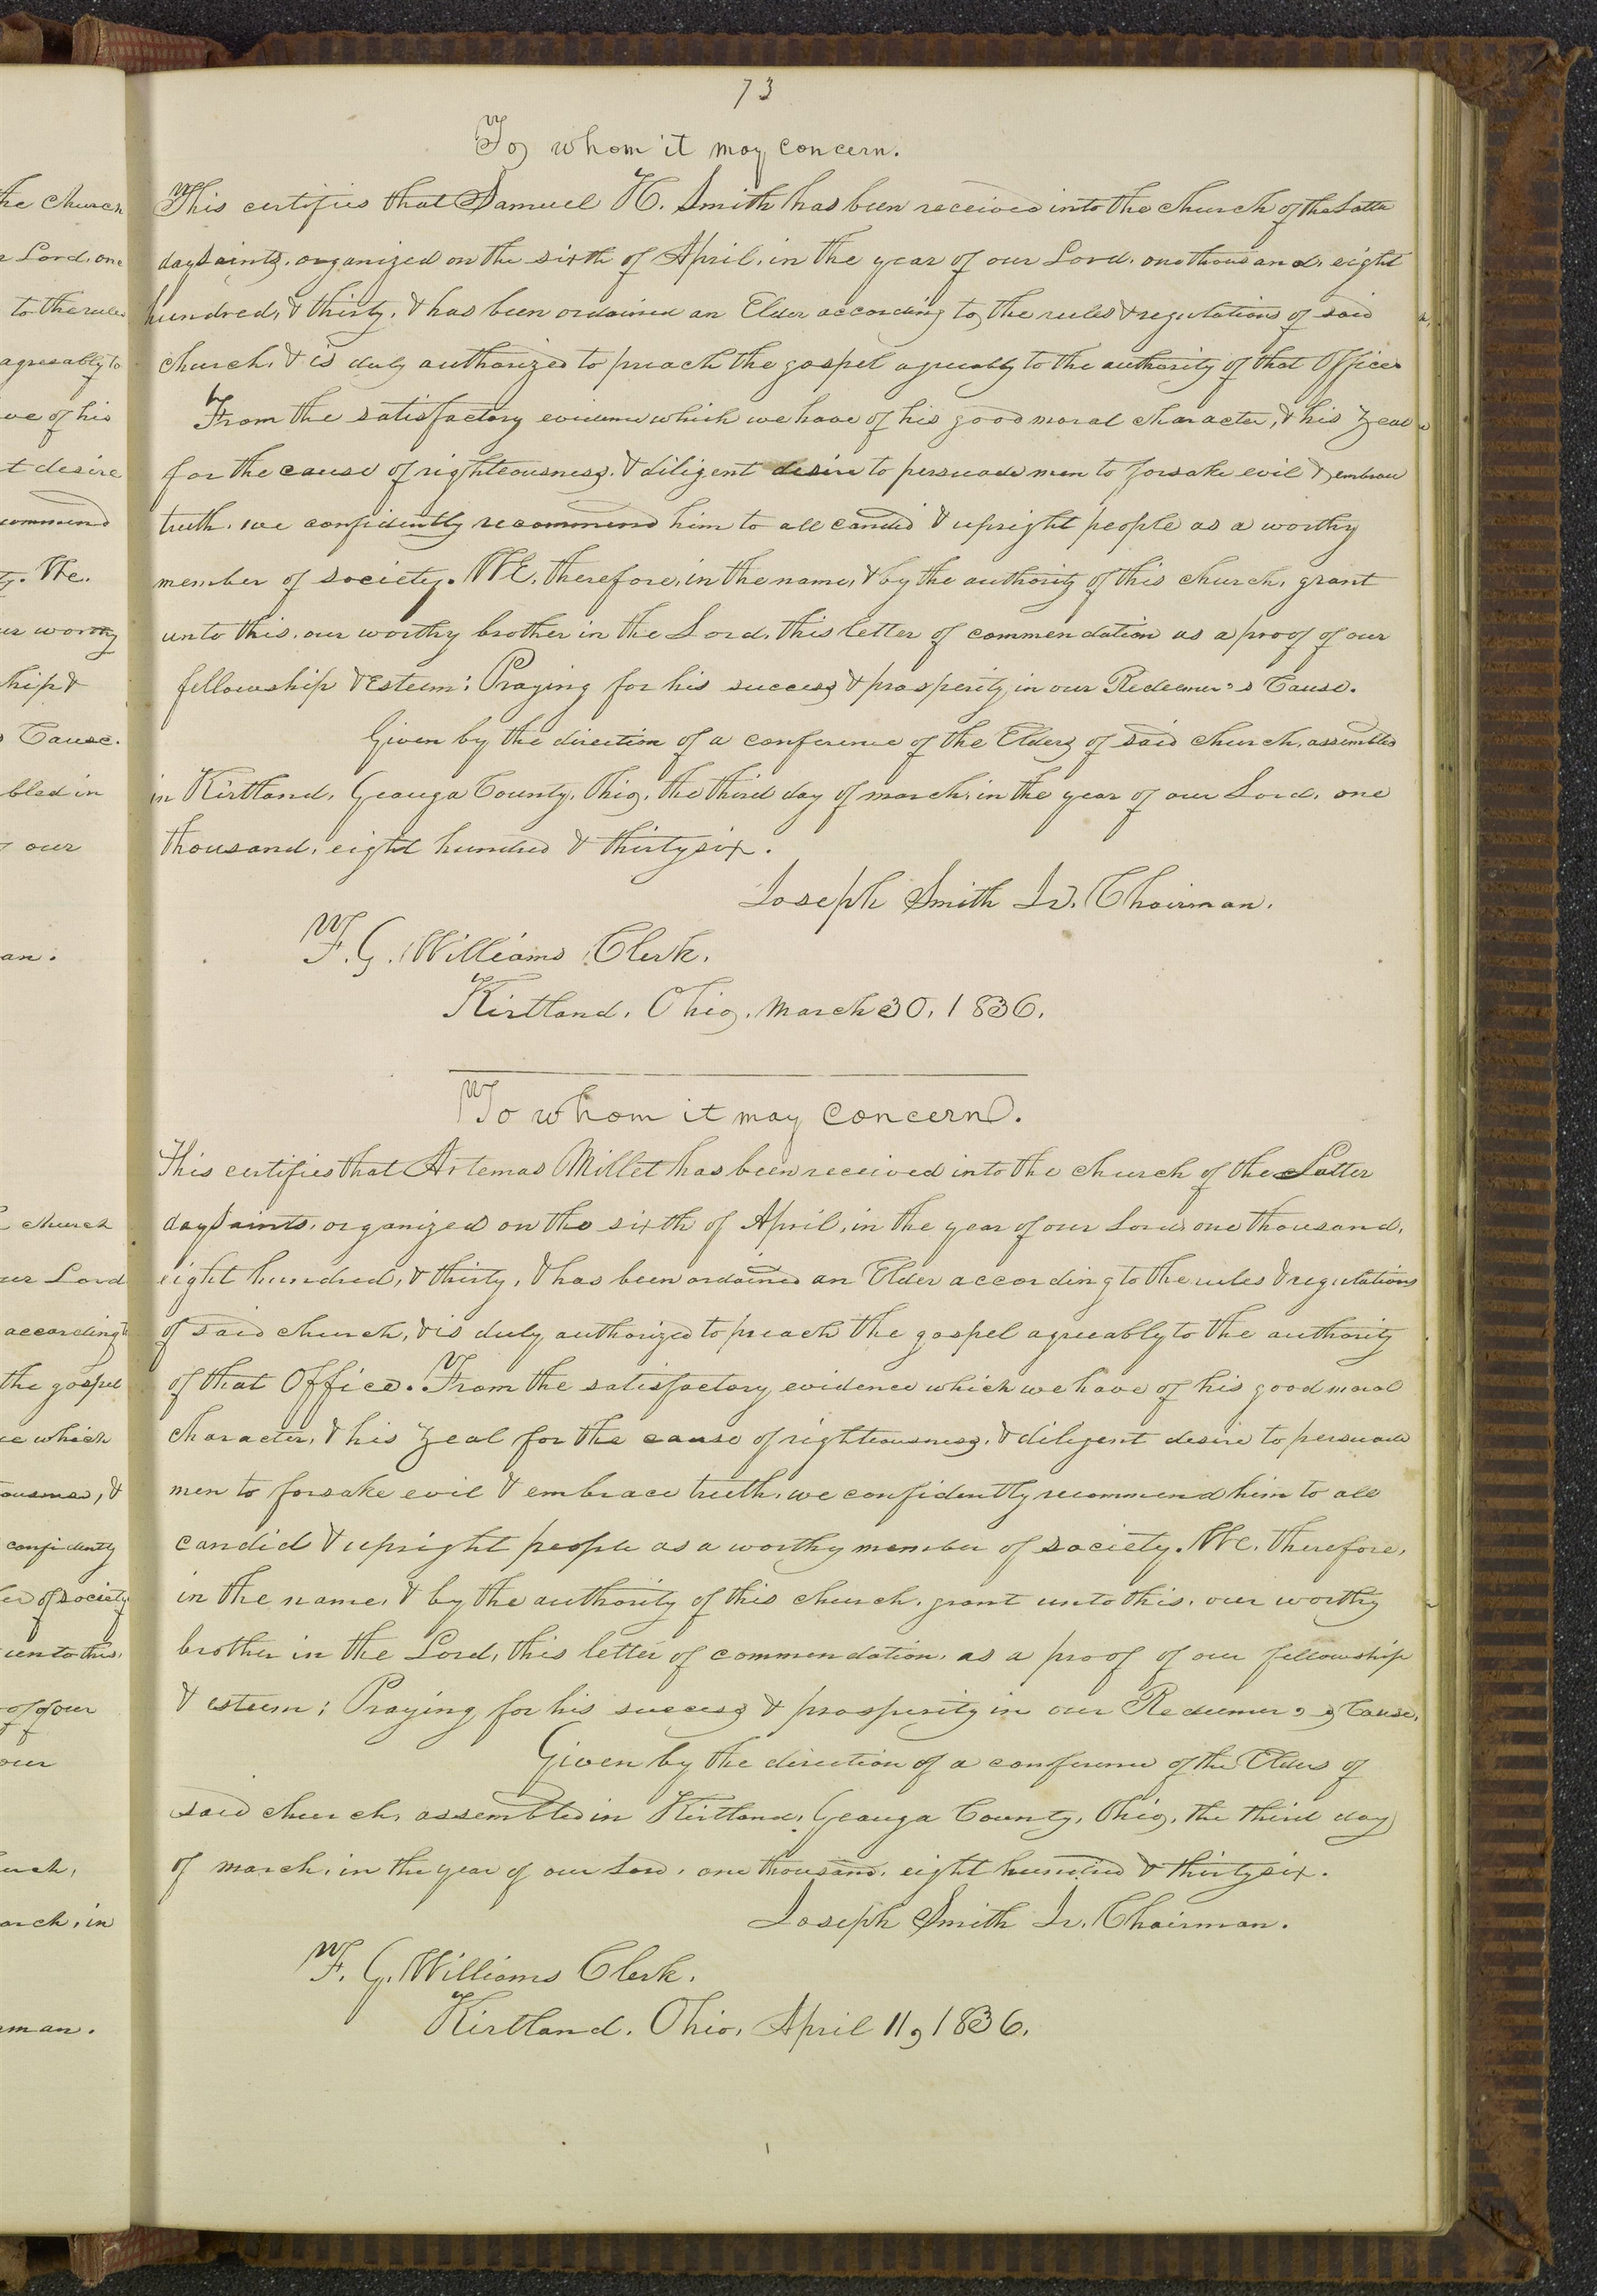 73
To whom it may concern.
This certifies that Samuel H. Smith has been received into the church of the Latter
day Saints, organized on the sixth of April, in the year of our Lord, one thousand, eight
hundred, & thirty, & has been ordained an Elder according to the rules & regulations of said
church, & is duly authorized to preach the gospel agreeably to the authority of that Office.
From the satisfactory evidence which we have of his good moral character, & his zeal
for the cause of righteousness, & diligent desire to persuade men to forsake evil & embrace
truth, we confidently recommend him to all candid & upright people as a worthy
member of society. We, therefore, in the name, & by the authority of this church, grant
unto this, our worthy brother in the Lord, this letter of commendation as a proof of our
fellowship & esteem: Praying for his success & prosperity in our Redeemer's Cause.
Given by the direction of a conference of the Elders of said church, assembled
in Kirtland, Geauga County, Ohio, the third day of march, in the year of our Lord, one
thousand, eight hundred & thirty six.
Joseph Smith Jr. Chairman.
F. G. Williams Clerk.
Kirtland, Ohio, March 30, 1836.
To whom it may concern.
This certifies that Artemas Millet has been received into the church of the Latter
day Saints, organized on the sixth of April, in the year of our Lord, one thousand,
eight hundred, & thirty, & has been ordained an Elder according to the rules & regulations
of said church, & is duly authorized to preach the gospel agreeably to the authority
of that Office. From the satisfactory evidence which we have of his good moral
character, & his zeal for the cause of righteousness, & diligent desire to persuade
men to forsake evil & embrace truth, we confidently recommend him to all
candid & upright people as a worthy member of society. We, therefore,
in the name, & by the authority of this church, grant unto this, our worthy
brother in the Lord, this letter of commendation, as a proof of our fellowship
& esteem: Praying for his success & prosperity in our Redeemer's Cause.
Given by the direction of a conference of the Elders of
said church, assembled in Kirtland, Geauga County, Ohio, the third day
of march, in the year of our Lord, one thousand, eight hundred & thirty six.
Joseph Smith Jr. Chairman.
F. G. Williams Clerk.
Kirtland, Ohio, April 11, 1836.